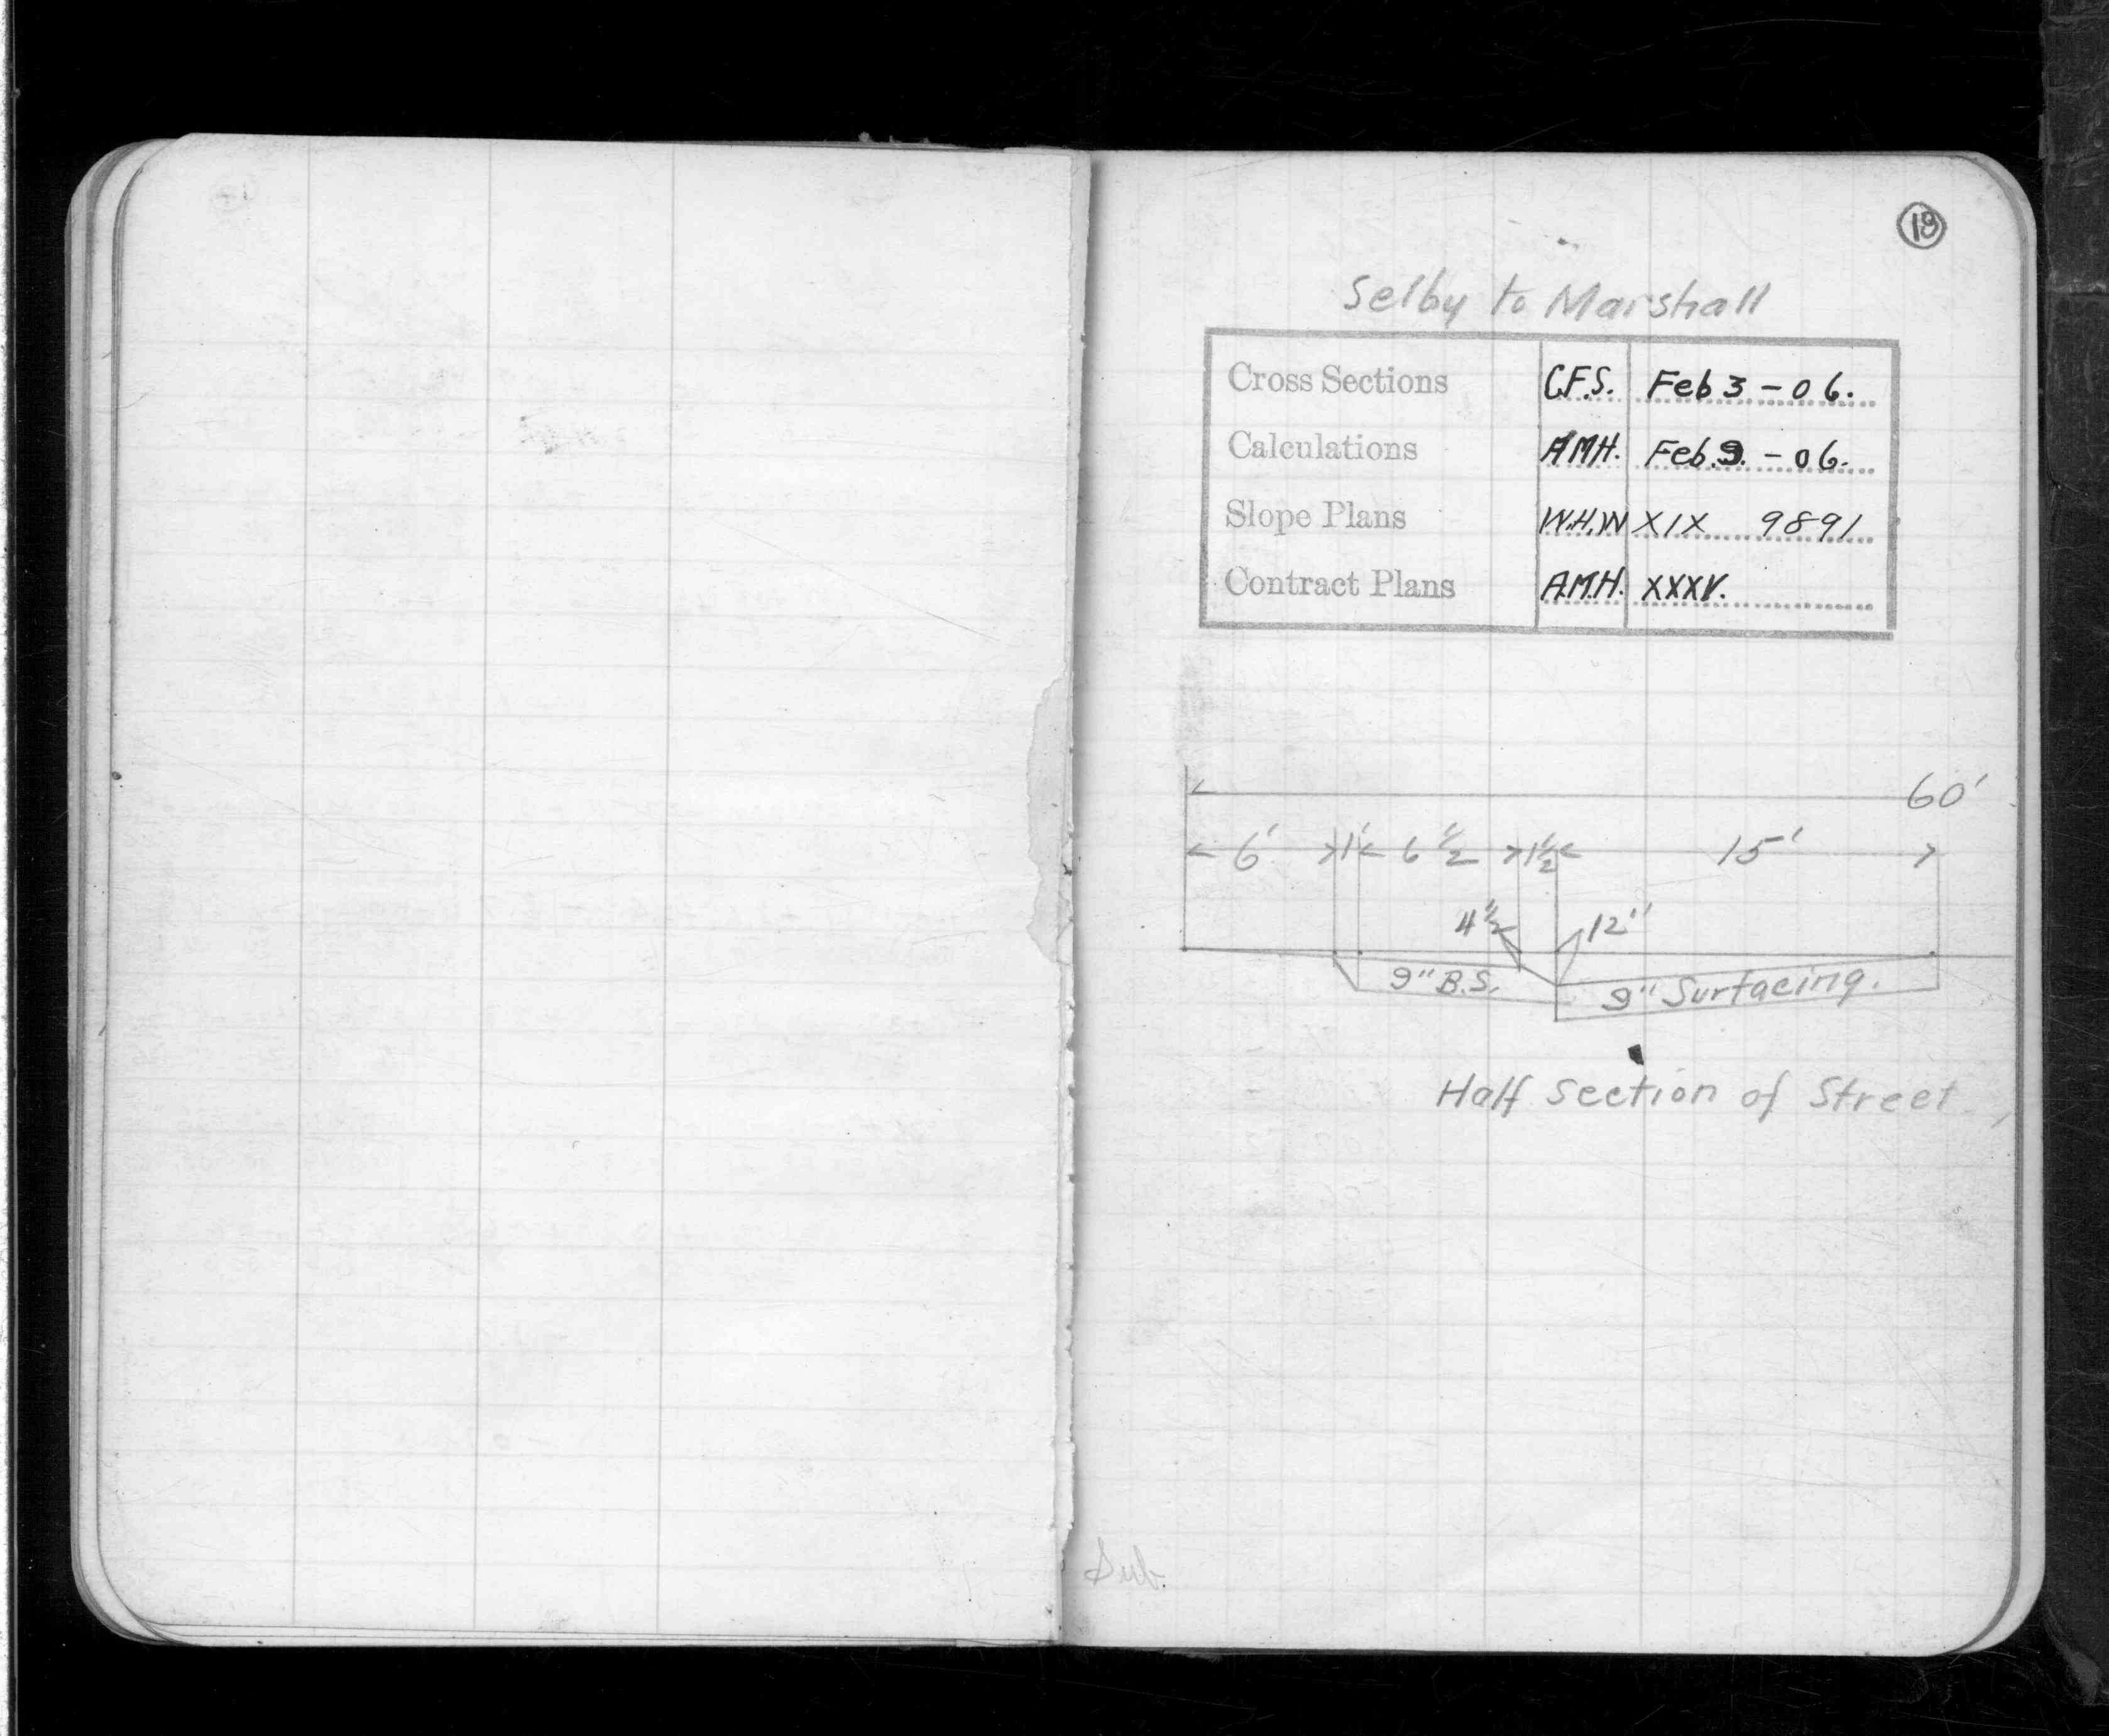 18
Selby to Marshall
Cross Sections C.F.S. Feb 3 - 06.
Calculations A.M.H. Feb. 9. - 06.
Slope Plans W.H.W XIX 9891
Contract Plans A.M.H. XXXV.
60'
6' 1' 6 1/2 1 1/2 15'
4 1/2 12"
9" B.S. 9" Surfacing.
Half Section of Street
Sub.